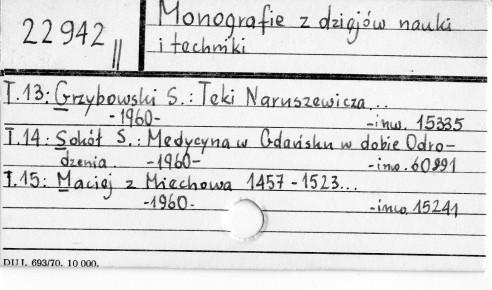 22942 II
Monografie z dziejów nauki
i techniki
T.13: Grzybowski S.: Teki Naruszewicza...
-1960- -inw. 15335
T.14: Sokół S.: Medycyna w Gdańsku w dobie Odro-
dzenia. -1960- -inw. 60891
T.15: Maciej z Miechowa 1457-1523...
-1960- -inw. 15241
DUJ. 693/70. 10 000.